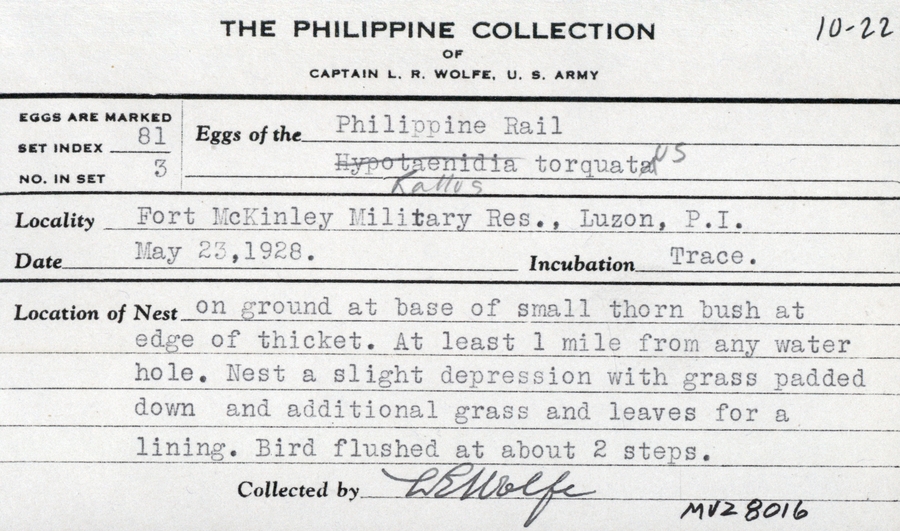 THE PHILIPPINE COLLECTION
10-22
OF
CAPTAIN L. R. WOLFE, U. S. ARMY
EGGS ARE MARKED
SET INDEX 81
NO. IN SET 3
Eggs of the Philippine Rail
Hypotaenidia torquata us
Rallus
Locality Fort McKinley Military Res., Luzon, P.I.
Date May 23,1928. Incubation Trace.
Location of Nest on ground at base of small thorn bush at
edge of thicket. At least 1 mile from any water
hole. Nest a slight depression with grass padded
down and additional grass and leaves for a
lining. Bird flushed at about 2 steps.
Collected by LRWolfe
MVZ 8016